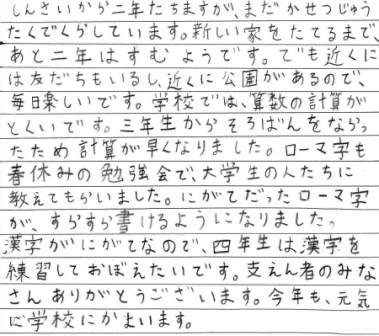 しんさいから二年たちますが、まだかせつじゅう
たくでくらしています。新しい家をたてるまで、
あと二年はすむようです。でも近くに
は友だちもいるし、近くに公園があるので、
毎日楽しいです。学校では、算数の計算が
とくいです。三年生からそろばんをならっ
たため計算が早くなりました。ローマ字も
春休みの勉強会で、大学生の人たちに
教えてもらいました。にがてだったローマ字
が、すらすら書けるようになりました。
漢字がにがてなので、四年生は漢字を
練習しておぼえたいです。支えん者のみな
さんありがとうございます。今年も、元気
に学校にかよいます。